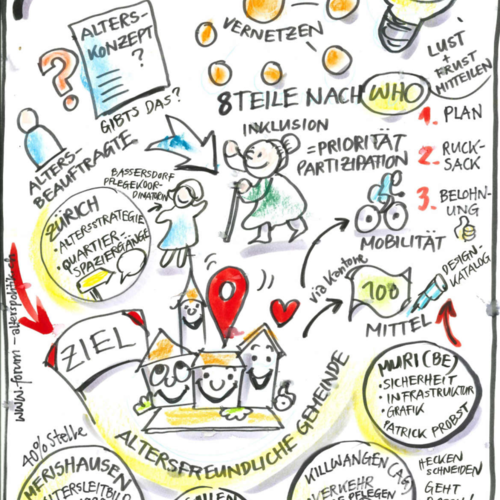 ALTERS-
KONZEPT
?
?
VERNETZEN
LUST
+
FRUST
MITTEILEN
GIBTS DAS?
ALTERS-
BEAUFTRAGTE
8 TEILE NACH WHO
INKLUSION
= PRIORITÄT
PARTIZIPATION
1. PLAN
2. RUCK-
SACK
3. BELOHN-
UNG
BASSERSDORF
PFLEGEKOOR-
DINATORIN
ZÜRICH
• ALTERSSTRATEGIE
• QUARTIER-
SPAZIERGÄNGE
MOBILITÄT
via Kantone
100
MITTEL
DESIGN-
KATALOG
ZIEL
ALTERSFREUNDLICHE GEMEINDE
MURI (BE)
• SICHERHEIT
• INFRASTRUKTUR
• GRAFIK
PATRICK PROBST
40% Stelle
MERISHAUSEN
KILLWANGEN (AG)
VERKEHR
PFLEGEN
HECKEN
SCHNEIDEN
GEHT